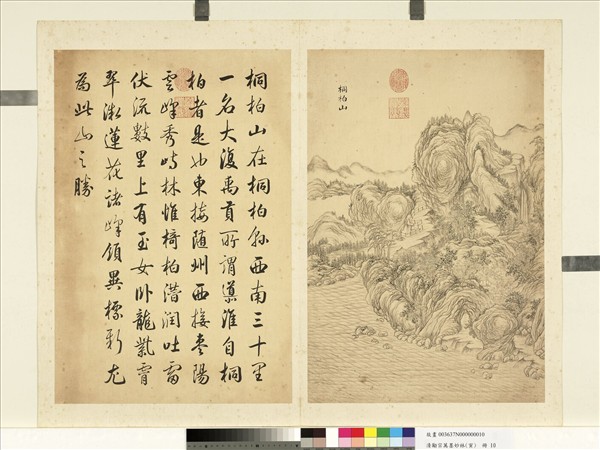 桐柏山在桐柏縣西南三十里
一名大復禹貢所謂導淮自桐
柏者是也東接隨州西接棗陽
雲峰秀峙林惟椅柏潛潤吐霤
伏流數里上有玉女卧龍紫霄
翠微蓮花諸峰領異標新尤
為此山之勝
桐柏山
故畫 003637N000000010